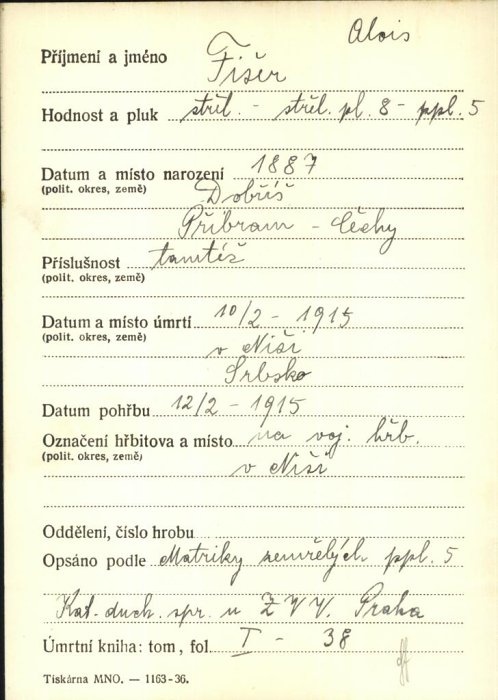 Alois
Příjmení a jméno Fišer
Hodnost a pluk střel. - střel. pl. 8 - ppl. 5
Datum a místo narození 1887
(polit. okres, země) Dobříš
Příbram - Čechy
Příslušnost tamtéž
(polit. okres, země)
Datum a místo úmrtí 10/2 - 1915
(polit. okres, země) v Niši
Srbsko
Datum pohřbu 12/2 - 1915
Označení hřbitova a místo na voj. hřb.
(polit. okres, země) v Niši
Oddělení, číslo hrobu
Opsáno podle Matriky zemřelých ppl. 5
Kat. duch. spr. u Z V V. Praha
Úmrtní kniha: tom, fol. I - 38
Tiskárna MNO. — 1163-36.